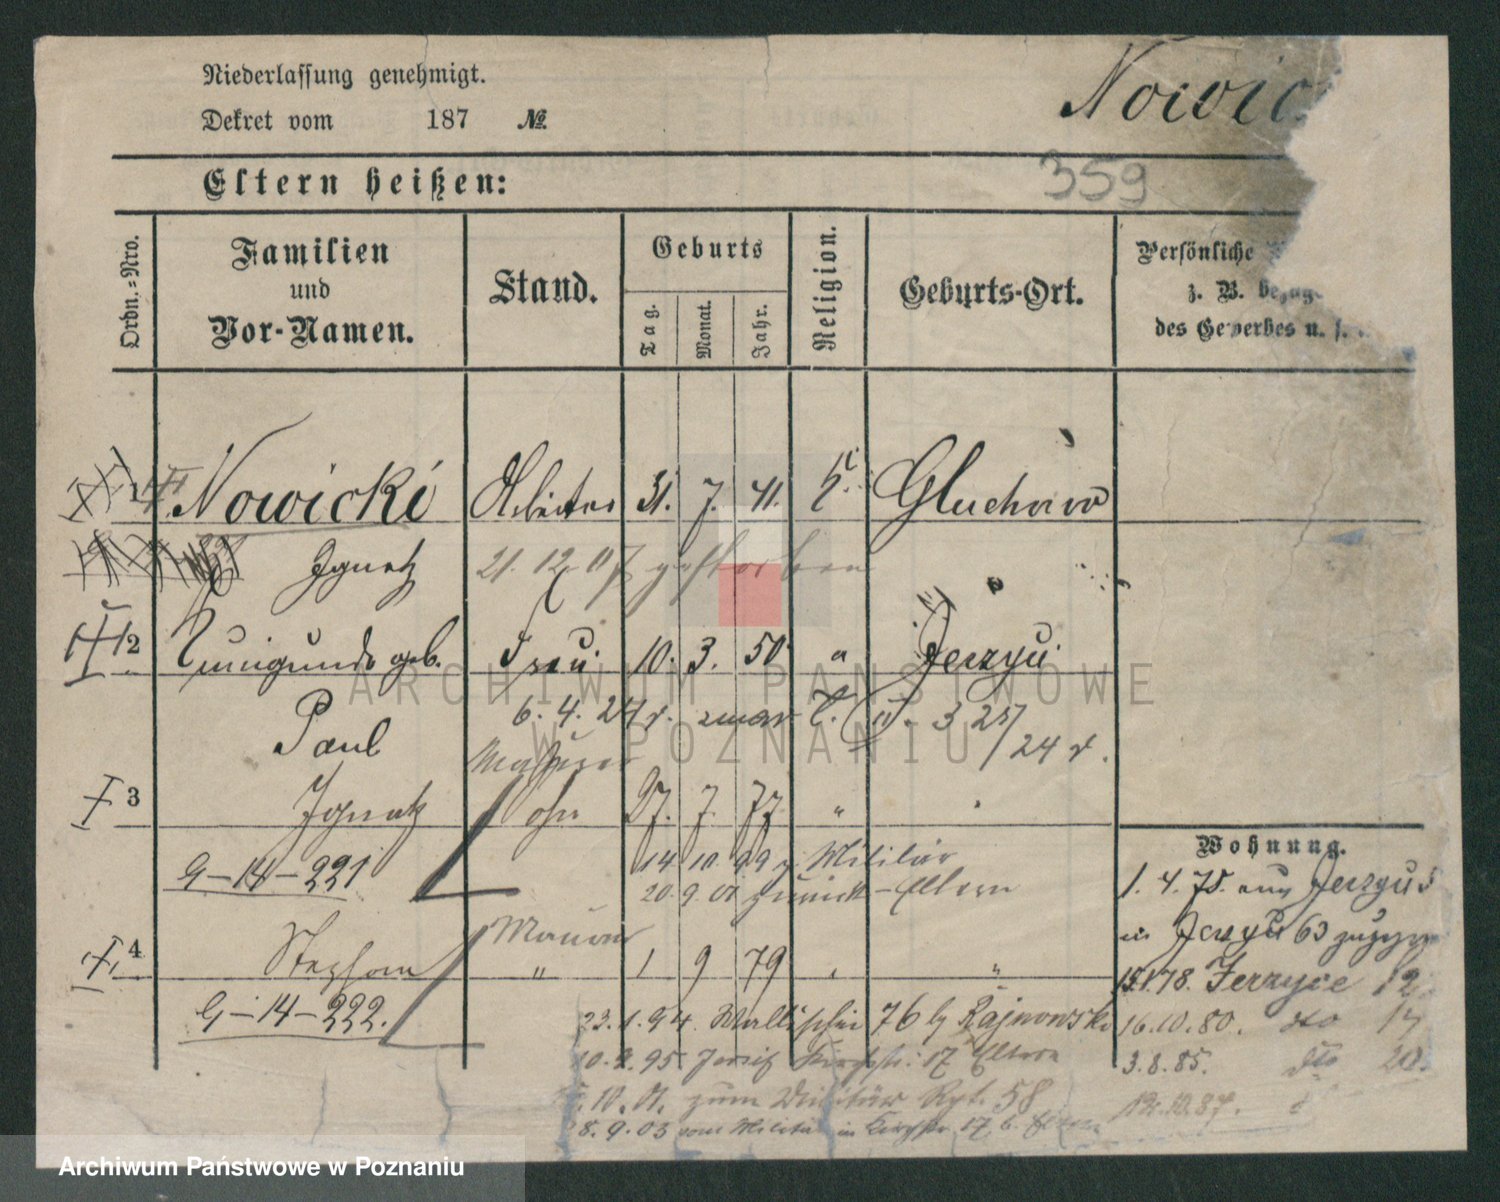 Niederlassung genehmigt.
Dekret vom 187 №
Nowic
359
Eltern heißen:
Ordn.-Nro.
Familien
und
Vor-Namen.
Stand.
Geburts
Tag.
Monat.
Jahr.
Religion.
Geburts-Ort.
Persönliche
z. B. bezüg
des Gewerbes u. s.
1 Nowicki Arbeiter 31. 7. 41. k. Gluchowo
Ignatz 21. 12. 07 gestorben
2 Kunigunde geb. Frau 10. 3. 50 " Jerzyce
Paul 6. 4. 24 r. zmar
3 25/24 r.
Maurer
3 Ignatz Sohn 27. 7. 77 "
G-14-221
14 10 99 z. Militär
20. 9. 01 zurück - Eltern
Wohnung.
1. 4. 75. aus Jerzyce
in Jerzyce 63
Maurer
4 Stephan " 1 9 79 " "
G-14-222.
15.1.78. Jerzyce 12.
23. 1. 94. Wallischei 76 b Rajnowski
16.10.80. dto 17
10. 2. 95. Jersitz Kirchstr. 17 Eltern
3.8.85. dto 20.
10. 01. zum Militär Rgt. 58
12.10.87.
8. 9. 03 vom Militär in Kirchstr. 17 b. Eltern
ARCHIWUM PAŃSTWOWE
W POZNANIU
Archiwum Państwowe w Poznaniu